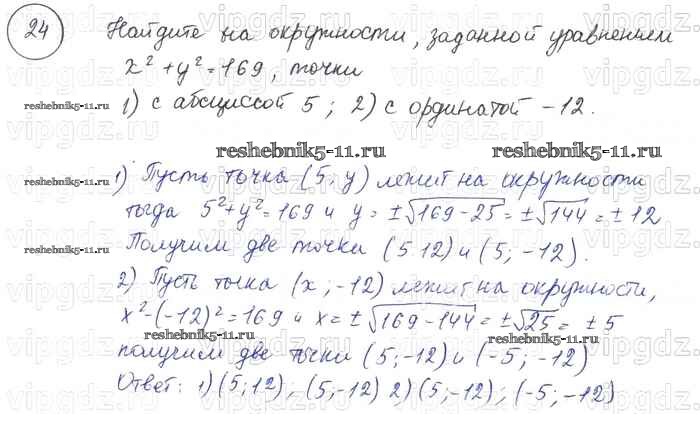 24
Найдите на окружности, заданной уравнением
x² + y² = 169, точки
reshebnik5-11.ru
1) с абсциссой 5 ; 2) с ординатой -12.
reshebnik5-11.ru reshebnik5-11.ru
1) Пусть точка (5, y) лежит на окружности
reshebnik5-11.ru
тогда 5² + y² = 169 и y = ±√169-25 = ±√144 = ± 12
Получим две точки (5 12) и (5; -12).
reshebnik5-11.ru
2) Пусть точка (x ; -12) лежит на окружности,
x² - (-12)² = 169 и x = ±√169-144 = ±√25 = ± 5
reshebnik5-11.ru reshebnik5-11.ru
получим две точки (5; -12) и (-5; -12)
Ответ: 1) (5; 12) ; (5; -12) 2) (5; -12) ; (-5; -12)
reshebnik5-11.ru